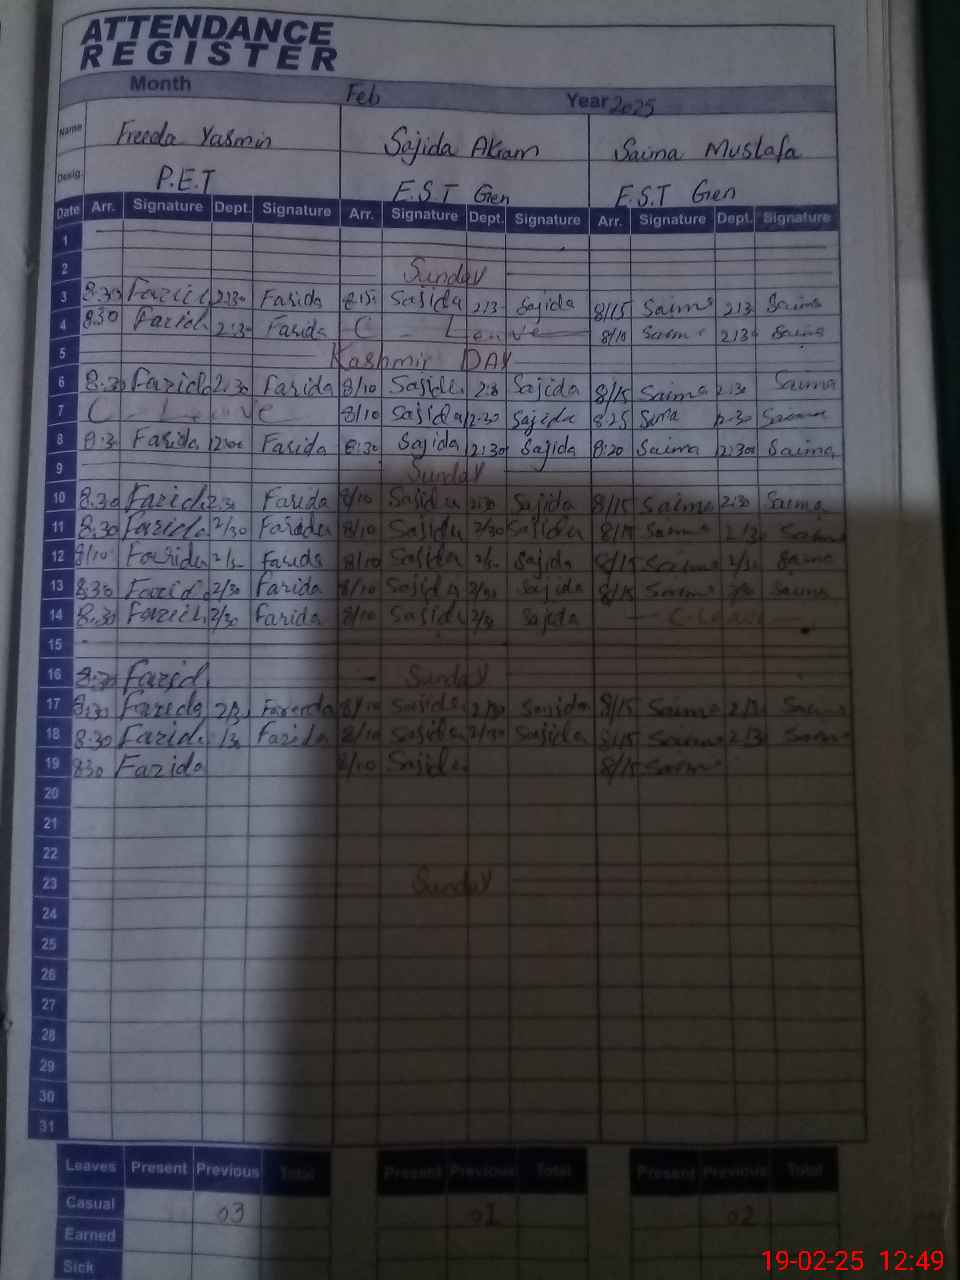 ATTENDANCE
REGISTER
Month Feb Year 2025
Name Freeda Yasmin Sajida Akram Saima Mustafa
Desig. P.E.T E.S.T Gen E.S.T Gen
Date Arr. Signature Dept. Signature Arr. Signature Dept. Signature Arr. Signature Dept. Signature
1
2 Sunday
3 8:30 2:30 Farida Sajida 2:3 Sajida 8/15 Saima 2:3 Saima
4 8:30 Farida 2:30 Farida C Leave 8/10 Saima 2:30 Saima
5 Kashmir DAY
6 8:30 Farida 2:30 Farida 8/10 Sajida 2:3 Sajida 8/15 Saima 2:30 Saima
7 C. Leave 8/10 Sajida 2:30 Sajida 8:25 12:30 Saima
8 8:3 Farida 12:00 Farida 8:30 Sajida 12:30 Sajida 8:20 Saima 12:30 Saima
9 Sunday
10 8:30 Farida 2:30 Farida 8/10 Sajida 2:30 Sajida 8/15 Saima 2:30 Saima
11 8:30 Farida 2/30 Farida 8/10 Sajida 2/30 Sajida 8/15 Saima 2/30 Saima
12 8/10 Farida Farida 8/10 Sajida Sajida 8/15 Saima Saima
13 8:30 Farida 2/30 Farida 8/10 Sajida 2/30 Sajida 8/15 Saima Saima
14 8:30 Farida 2/30 Farida 8/10 Sajida 2/30 Sajida C-Leave
15
16 Farid Sunday
17 8:30 Farida 2/3 Fareeda 8/10 Sajida 2/30 Sajida 8/15 Saima 2/3 Saima
18 8:30 Farida /30 Farida 8/10 Sajida 2/30 Sajida 8/15 Saima 2/3 Saima
19 830 Farida 8/10 Sajida 8/15 Saima
20
21
22
23 Sunday
24
25
26
27
28
29
30
31
Leaves Present Previous Total Present Previous Total Present Previous Total
Casual 03 01 02
Earned
Sick
19-02-25 12:49